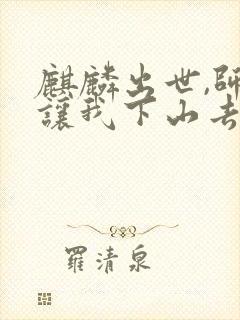 麒麟出世,師
讓我下山去
羅清泉